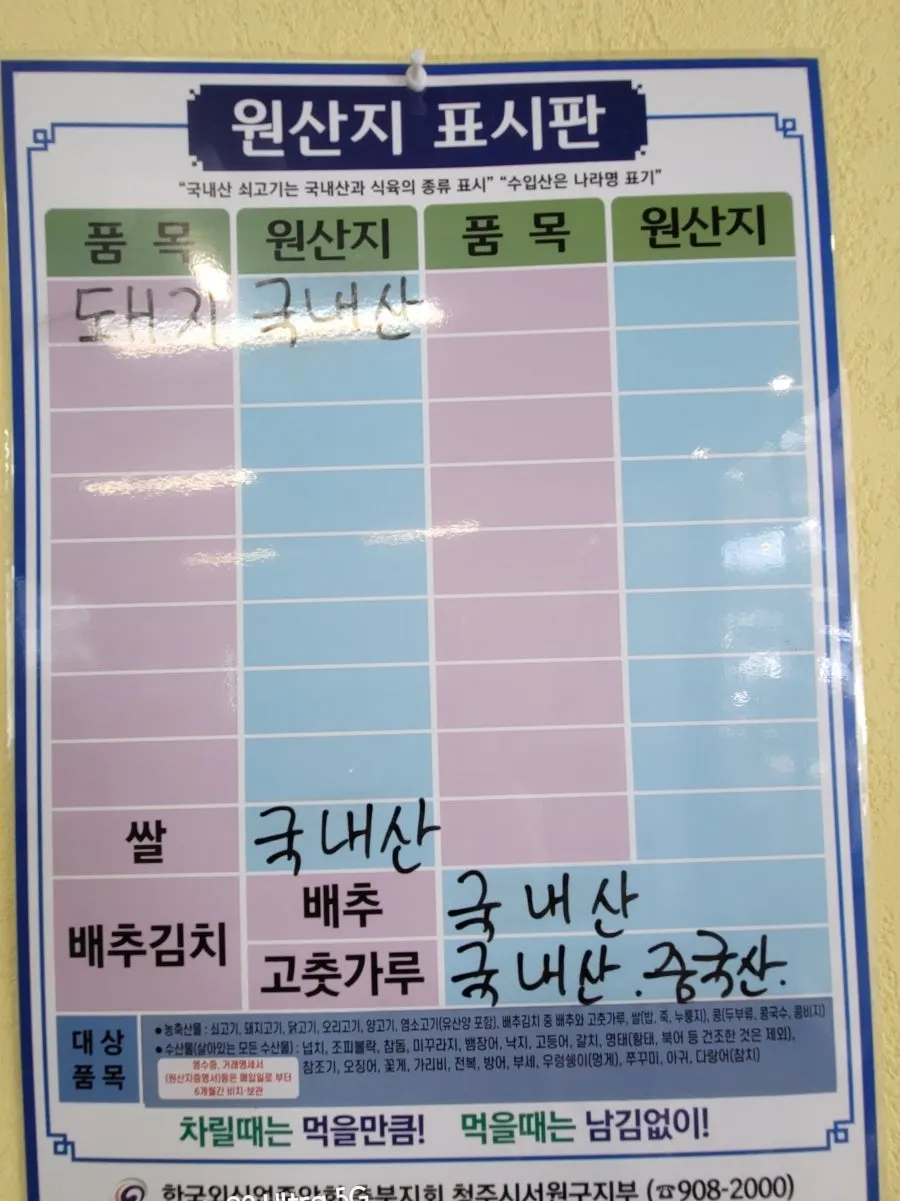 원산지 표시판
“국내산 쇠고기는 국내산과 식육의 종류 표시” “수입산은 나라명 표기”
품 목 원산지 품 목 원산지
돼지 국내산
쌀 국내산
배추김치 배추 국내산
고춧가루 국내산. 중국산.
대상 품목
● 농축산물 : 쇠고기, 돼지고기, 닭고기, 오리고기, 양고기, 염소고기(유산양 포함), 배추김치 중 배추와 고춧가루, 쌀(밥, 죽, 누룽지), 콩(두부류, 콩국수, 콩비지)
● 수산물(살아있는 모든 수산물) : 넙치, 조피볼락, 참돔, 미꾸라지, 뱀장어, 낙지, 고등어, 갈치, 명태(황태, 북어 등 건조한 것은 제외),
참조기, 오징어, 꽃게, 가리비, 전복, 방어, 부세, 우렁쉥이(멍게), 쭈꾸미, 아귀, 다랑어(참치)
영수증, 거래명세서
(원산지증명서)등은 매입일로 부터
6개월간 비치·보관
차릴때는 먹을만큼! 먹을때는 남김없이!
한국외식업중앙회 충북지회 청주시서원구지부 (☎908-2000)
Ultra 5G